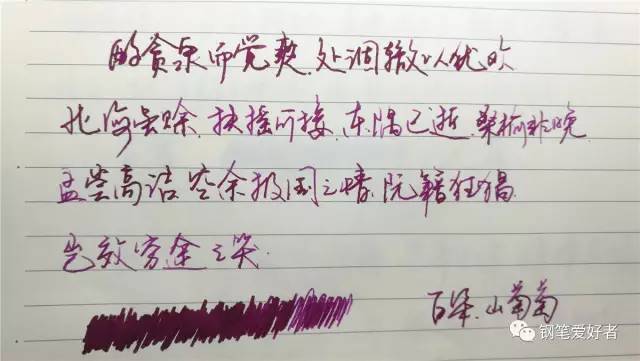 酌贪泉而觉爽.处涸辙以犹欢
北海虽赊.扶摇可接.东隅已逝.桑榆非晚.
孟尝高洁.空余报国之情.阮籍狂猖.
岂效穷途之哭.
百乐.山葡萄
钢笔爱好者